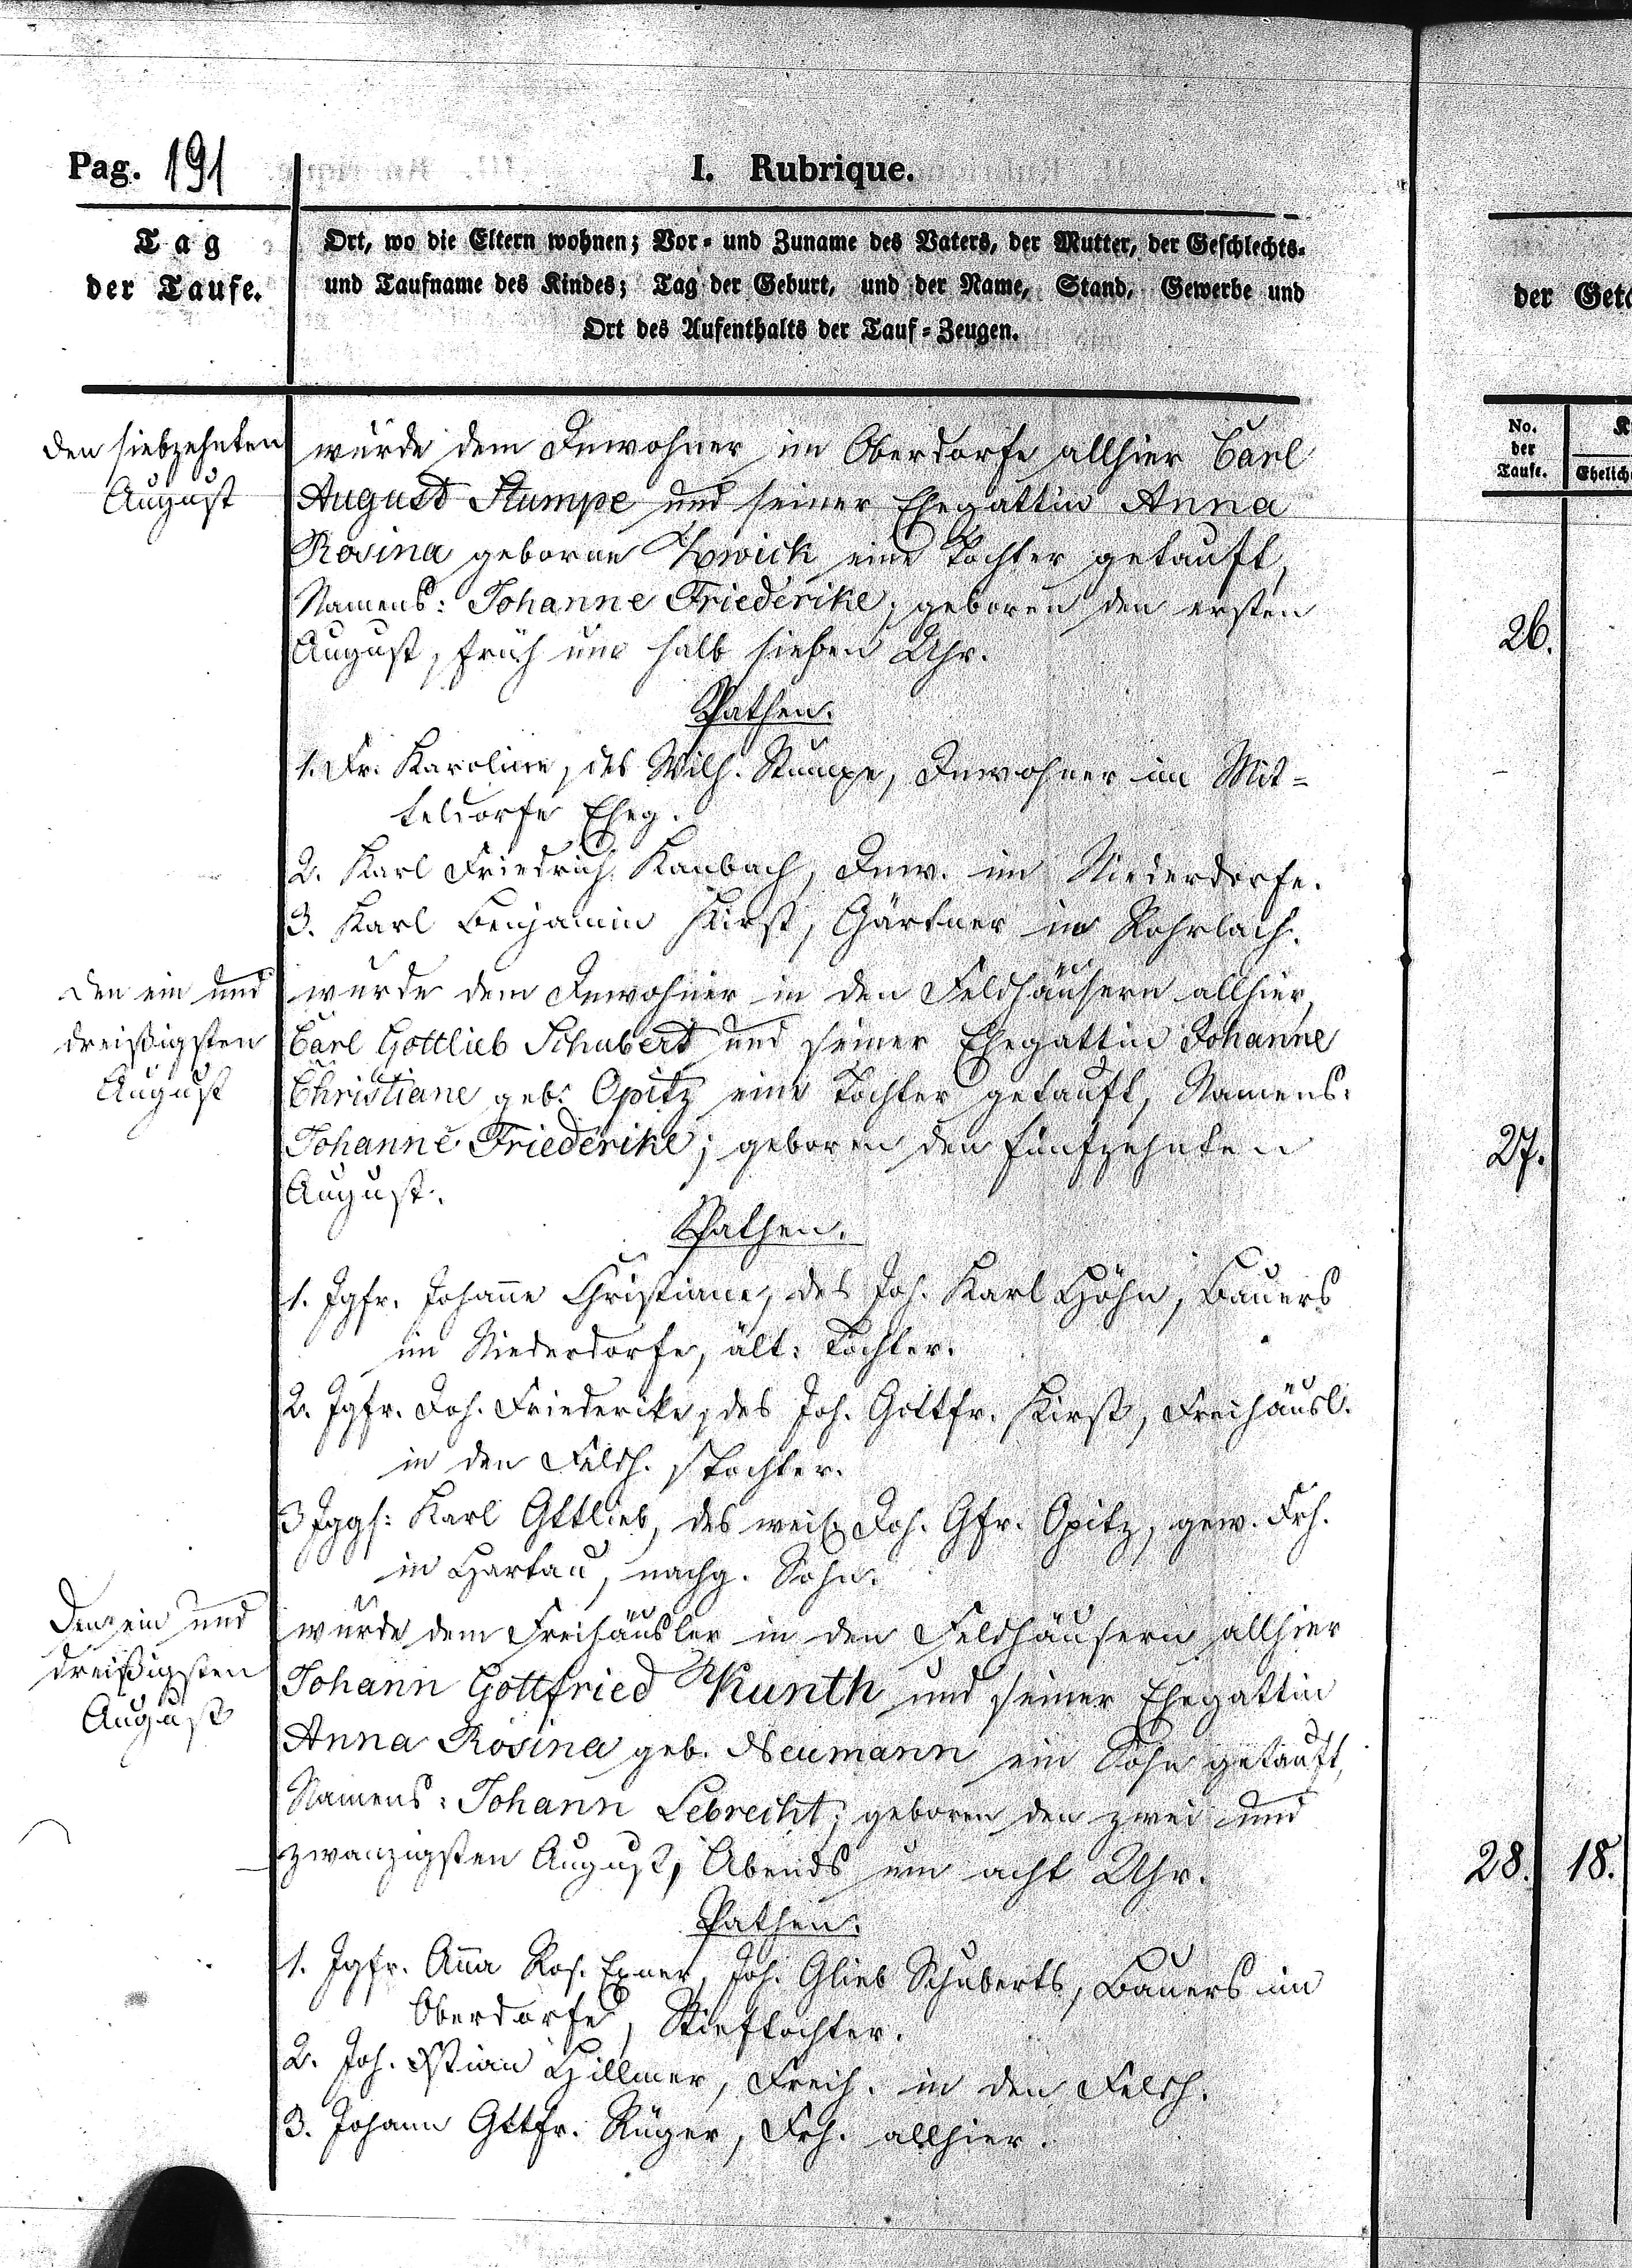 Pag. 191
I. Rubrique.
Tag
der Taufe.
Ort, wo die Eltern wohnen; Vor- und Zuname des Vaters, der Mutter, der Geschlechts-
und Taufname des Kindes; Tag der Geburt, und der Name, Stand, Gewerbe und
Ort des Aufenthalts der Tauf-Zeugen.
der Geta
No.
der
Taufe.
K
Ehelich
den siebzehnten
August
wurde dem Inwohner im Oberdorfe allhier Carl
August Stumpe und seiner Ehegattin Anna
Rosina geborne Zwick eine Tochter getauft,
Namens: Johanne Friederike; geboren den ersten
August, früh um halb sieben Uhr.
26.
Pathen.
1. Fr. Karoline, des Wilh. Stumpe, Inwohner im Mit-
teldorfe Eheg.
2. Karl Friedrich Kambach, Inw. im Niederdorfe.
3. Karl Benjamin Hirst, Gärtner in Rohrlach.
den ein und
dreißigsten
August
wurde dem Inwohner in den Feldhäusern allhier,
Carl Gottlieb Schubert und seiner Ehegattin Johanne
Christiane geb. Opitz eine Tochter getauft, Namens:
Johanne Friederike; geboren den fünfzehnten
August.
27.
Pathen.
1. Jgfr. Johanne Christiane, des Joh. Karl Höhn, Bauers
im Niederdorfe, ält. Tochter.
2. Jgfr. Joh. Friederike, des Joh. Gottfr. Hirst, Freihäusl.
in den Feldh. Tochter.
3 Jggs: Karl Gttlieb, des weil. Joh. Gfr. Opitz, gew. Frh.
in Hartau, nachg. Sohn.
Den ein und
dreißigsten
August
wurde dem Freihäusler in den Feldhäusern allhier
Johann Gottfried Kunth und seiner Ehegattin
Anna Rosina geb. Neumann ein Sohn getauft,
Namens: Johann Lebrecht; geboren den zwei und
zwanzigsten August, Abends um acht Uhr.
28. 18.
Pathen.
1. Jgfr. Anna Ros. Exner, Joh. Glieb Schuberts, Bauers im
Oberdorfe, Stieftochter.
2. Joh. Xstian Hillmer, Freih. in den Feldh.
3. Johann Gttfr. Rüger, Frh. allhier.